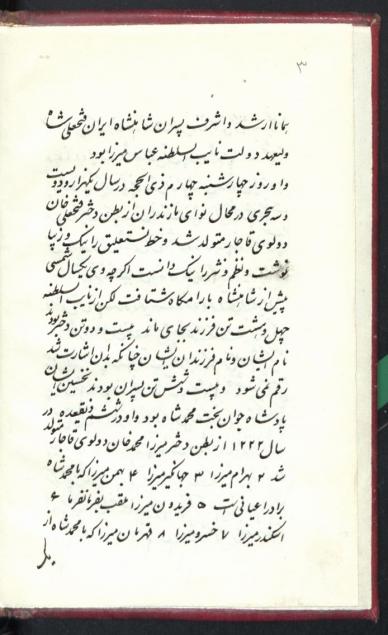 ۳
همانا ارشد و اشرف پسران شاهنشاه ایران فتحعلی شاه
ولیعهد دولت نایب السلطنه عباس میرزا بود
و او روز چهارشنبه چهارم ذی الحجه در سال یکهزار و دویست
و سه هجری در محال نوای مازندران از بطن دختر فتحعلی خان
دولوی قاجار متولد شد و خط نستعلیق را نیک و زیبا
نوشت و نظم و نثر را نیک دانست اگرچه وی یکسال شمسی
پیش از شاهنشاه بارامگاه شتافت لکن از نایب السلطنه
چهل و هشت تن فرزند بجای ماند بیست و دو تن دختر بودند
نام ایشان و نام فرزندان ایشان چنانکه بدان اشارت شد
رقم می شود و بیست و شش تن پسران بودند نخستین ایشان
پادشاه جوان بخت محمد شاه بود و او در ششم ذیقعده در
سال ۱۲۲۲ از بطن دختر میرزا محمد خان دولوی قاجار متولد
شد ۲ بهرام میرزا ۳ جهانگیر میرزا ۴ بهمن میرزا که با محمد شاه
برادر اعیانی است ۵ فریدون میرزا ملقب بفرمانفرما ۶
اسکندر میرزا ۷ خسرو میرزا ۸ قهرمان میرزا که با محمد شاه از